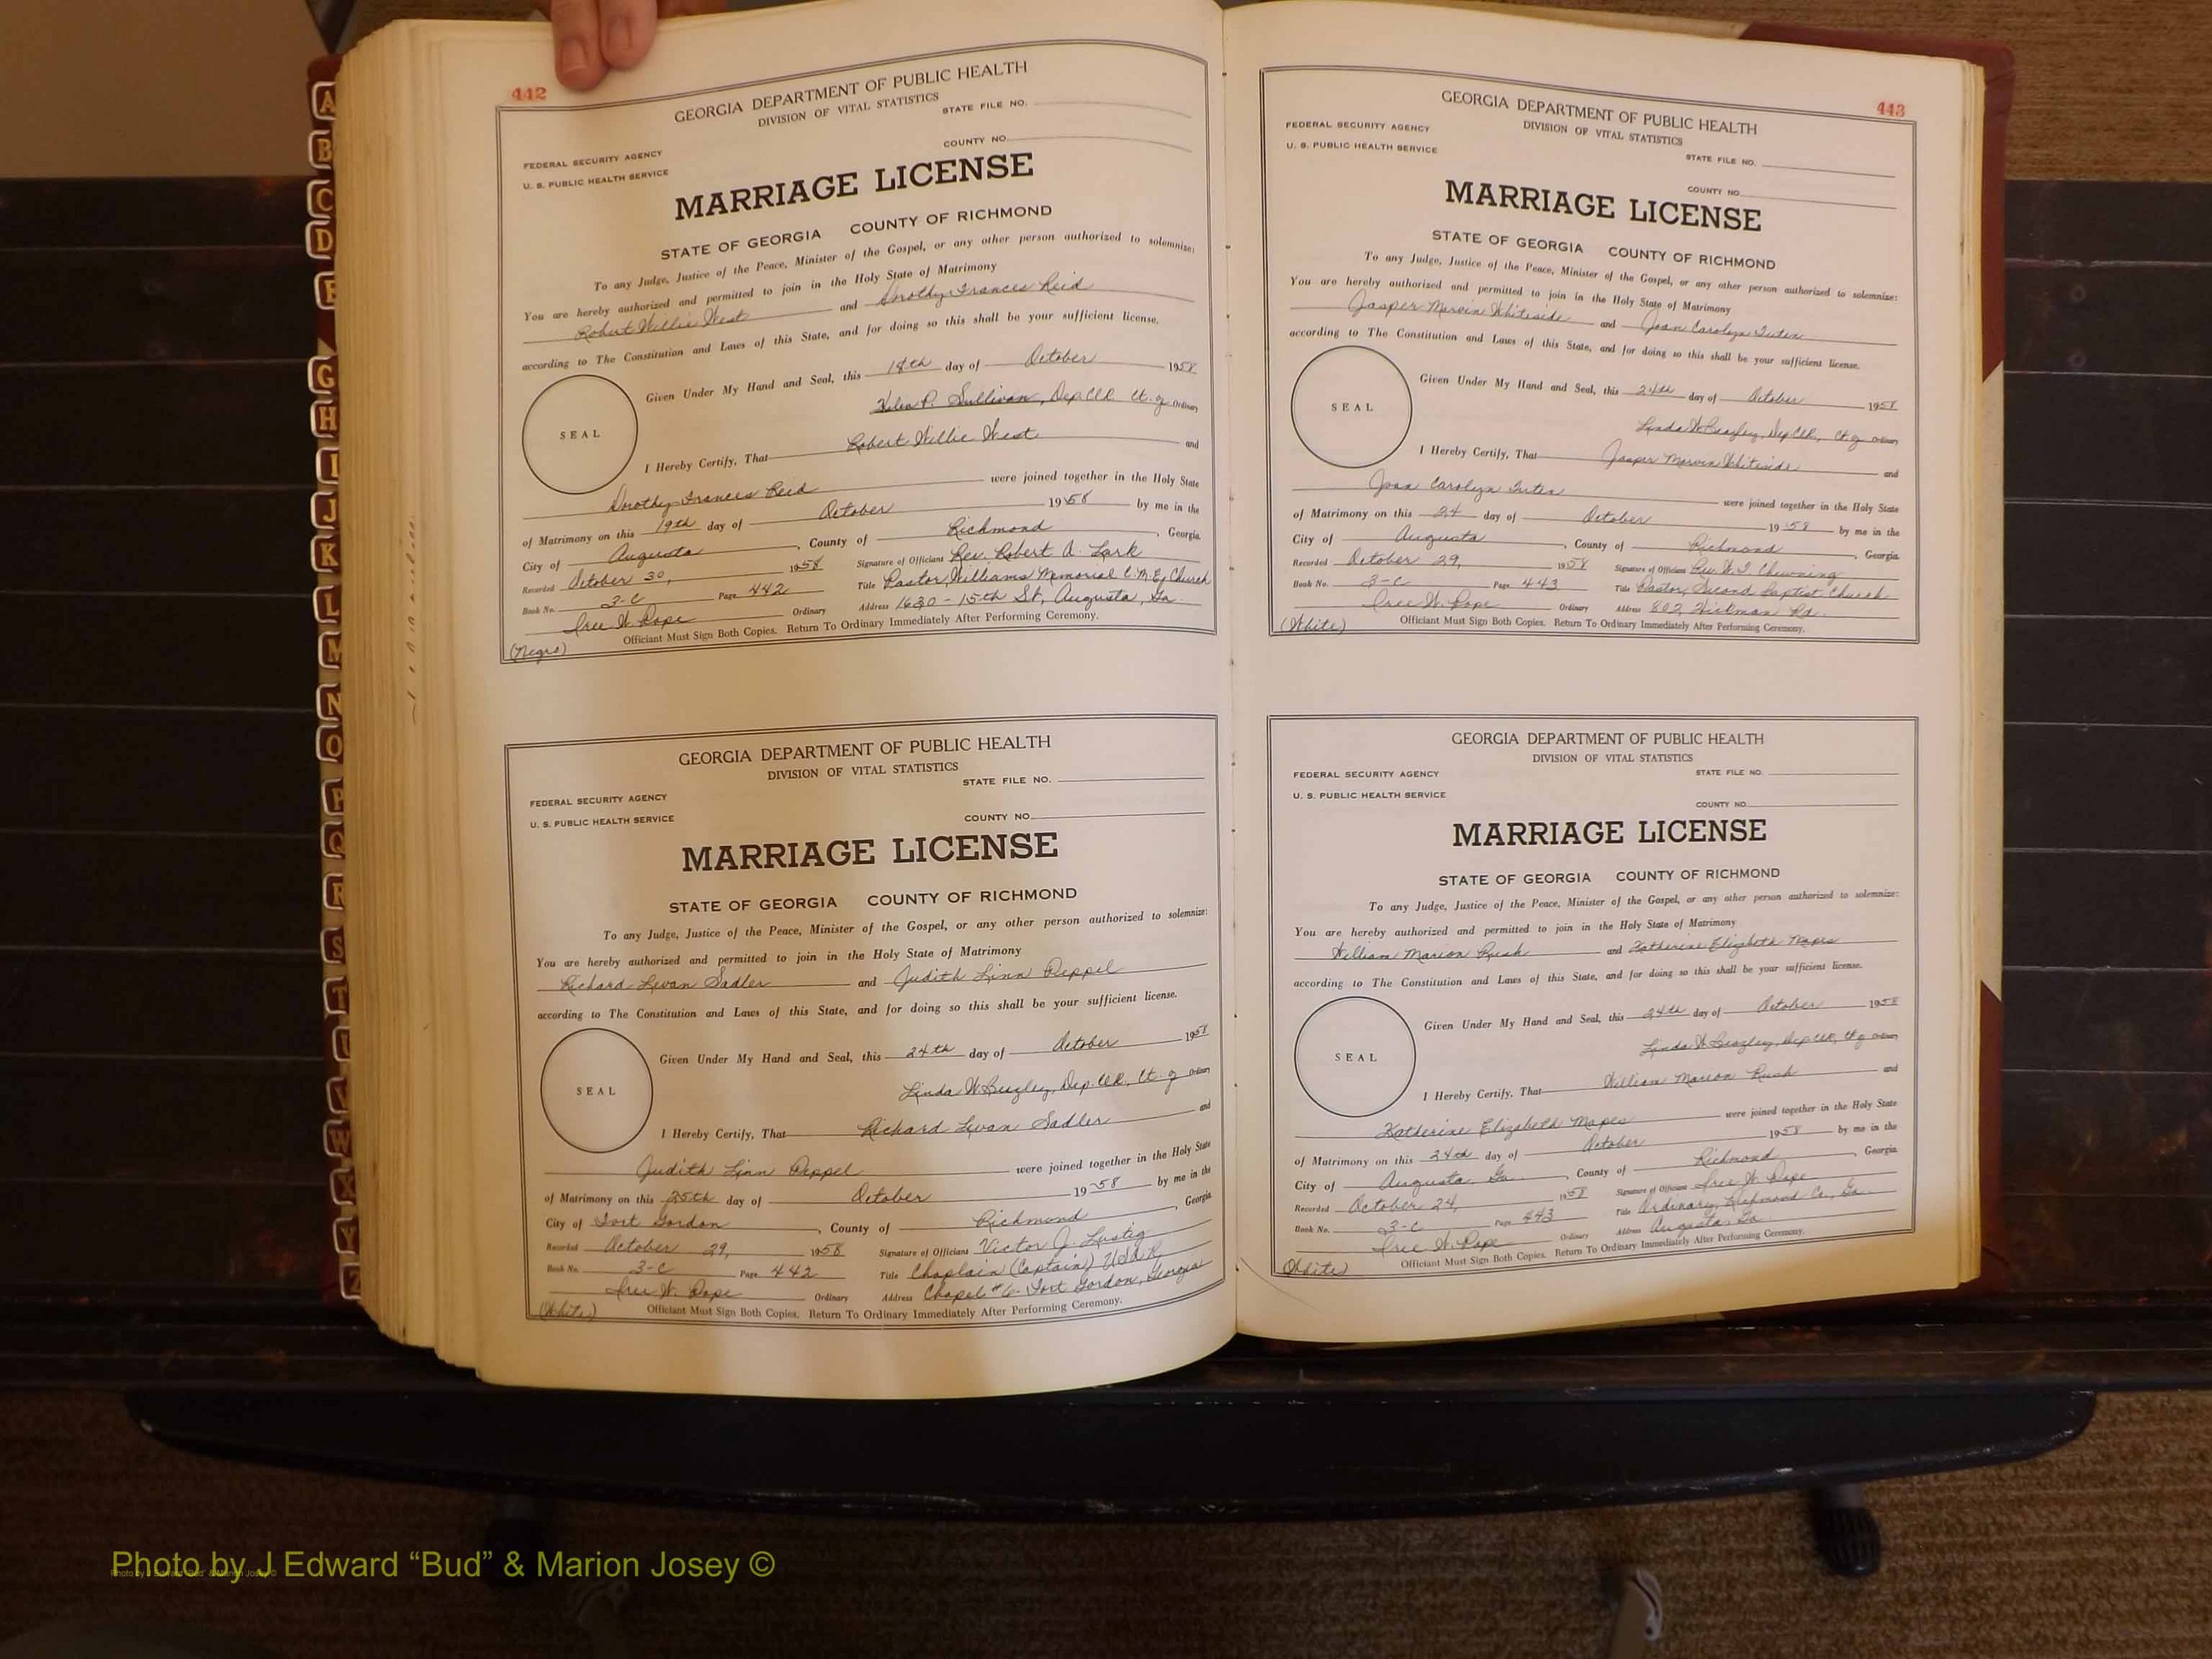 442
GEORGIA DEPARTMENT OF PUBLIC HEALTH
DIVISION OF VITAL STATISTICS
STATE FILE NO.
FEDERAL SECURITY AGENCY
COUNTY NO.
U. S. PUBLIC HEALTH SERVICE
MARRIAGE LICENSE
STATE OF GEORGIA COUNTY OF RICHMOND
To any Judge, Justice of the Peace, Minister of the Gospel, or any other person authorized to solemnize:
You are hereby authorized and permitted to join in the Holy State of Matrimony
Robert Willie West and Dorothy Frances Reid
according to The Constitution and Laws of this State, and for doing so this shall be your sufficient license.
Given Under My Hand and Seal, this 18th day of October 1958
Helen P. Sullivan, Dep Clk Ct. of Ordinary
SEAL
I Hereby Certify, That Robert Willie West and
Dorothy Frances Reid were joined together in the Holy State
of Matrimony on this 19th day of October 1958 by me in the
City of Augusta, County of Richmond, Georgia.
Recorded October 30, 1958 Signature of Officiant Rev. Robert A. Lark
Book No. 3-C Page 442 Title Pastor, Williams Memorial C.M.E. Church
Iree W. Pope Ordinary Address 1630 - 15th St, Augusta, Ga.
(Negro) Officiant Must Sign Both Copies. Return To Ordinary Immediately After Performing Ceremony.
GEORGIA DEPARTMENT OF PUBLIC HEALTH
DIVISION OF VITAL STATISTICS
STATE FILE NO.
FEDERAL SECURITY AGENCY
U. S. PUBLIC HEALTH SERVICE
COUNTY NO.
MARRIAGE LICENSE
STATE OF GEORGIA COUNTY OF RICHMOND
To any Judge, Justice of the Peace, Minister of the Gospel, or any other person authorized to solemnize:
You are hereby authorized and permitted to join in the Holy State of Matrimony
Richard Levan Sadler and Judith Linn
according to The Constitution and Laws of this State, and for doing so this shall be your sufficient license.
Given Under My Hand and Seal, this 24th day of October 1958
Linda W Beazley, Dep. Clk., Ct. of Ordinary
SEAL
I Hereby Certify, That Richard Levan Sadler and
Judith Linn were joined together in the Holy State
of Matrimony on this 25th day of October 1958 by me in the
City of Fort Gordon, County of Richmond, Georgia
Recorded October 29, 1958 Signature of Officiant Victor J. Lustig
Book No. 3-C Page 442 Title Chaplain (Captain) USAR
Iree W. Pope Ordinary Address Chapel #6- Fort Gordon, Georgia
(White) Officiant Must Sign Both Copies. Return To Ordinary Immediately After Performing Ceremony.
443
GEORGIA DEPARTMENT OF PUBLIC HEALTH
DIVISION OF VITAL STATISTICS
FEDERAL SECURITY AGENCY
U. S. PUBLIC HEALTH SERVICE
STATE FILE NO.
COUNTY NO.
MARRIAGE LICENSE
STATE OF GEORGIA COUNTY OF RICHMOND
To any Judge, Justice of the Peace, Minister of the Gospel, or any other person authorized to solemnize:
You are hereby authorized and permitted to join in the Holy State of Matrimony
Jasper Marvin Whiteside and Joan Carolyn Tuten
according to The Constitution and Laws of this State, and for doing so this shall be your sufficient license.
Given Under My Hand and Seal, this 24th day of October 1958
Linda W Beazley, Dep Clk, Ct. of Ordinary
SEAL
I Hereby Certify, That Jasper Marvin Whiteside and
Joan Carolyn Tuten were joined together in the Holy State
of Matrimony on this 24 day of October 1958 by me in the
City of Augusta, County of Richmond, Georgia
Recorded October 29, 1958 Signature of Officiant Rev. W. I. Chewning
Book No. 3-C Page 443 Title Pastor, Second Baptist Church
Iree W. Pope Ordinary Address 802 Hickman Rd.
(White) Officiant Must Sign Both Copies. Return To Ordinary Immediately After Performing Ceremony.
GEORGIA DEPARTMENT OF PUBLIC HEALTH
DIVISION OF VITAL STATISTICS
FEDERAL SECURITY AGENCY
STATE FILE NO.
U. S. PUBLIC HEALTH SERVICE
COUNTY NO.
MARRIAGE LICENSE
STATE OF GEORGIA COUNTY OF RICHMOND
To any Judge, Justice of the Peace, Minister of the Gospel, or any other person authorized to solemnize:
You are hereby authorized and permitted to join in the Holy State of Matrimony
William Marion Rush and Katherine Elizabeth Mapes
according to The Constitution and Laws of this State, and for doing so this shall be your sufficient license.
Given Under My Hand and Seal, this 24th day of October 1958
Linda W Beazley, Dep Clk, Ct of Ordinary
SEAL
I Hereby Certify, That William Marion Rush and
Katherine Elizabeth Mapes were joined together in the Holy State
of Matrimony on this 24th day of October 1958 by me in the
City of Augusta, Ga. County of Richmond, Georgia
Recorded October 24, 1958 Signature of Officiant Iree W. Pope
Book No. 3-C Page 443 Title Ordinary, Richmond Co., Ga.
Iree W. Pope Ordinary Address Augusta, Ga
(White) Officiant Must Sign Both Copies. Return To Ordinary Immediately After Performing Ceremony.
A
B
C
D
F
G
H
I
J
K
L
M
N
O
P
Q
R
S
T
W
X
Y
Z
Photo by J Edward “Bud” & Marion Josey ©
Photo by J Edward "Bud" & Marion Josey ©